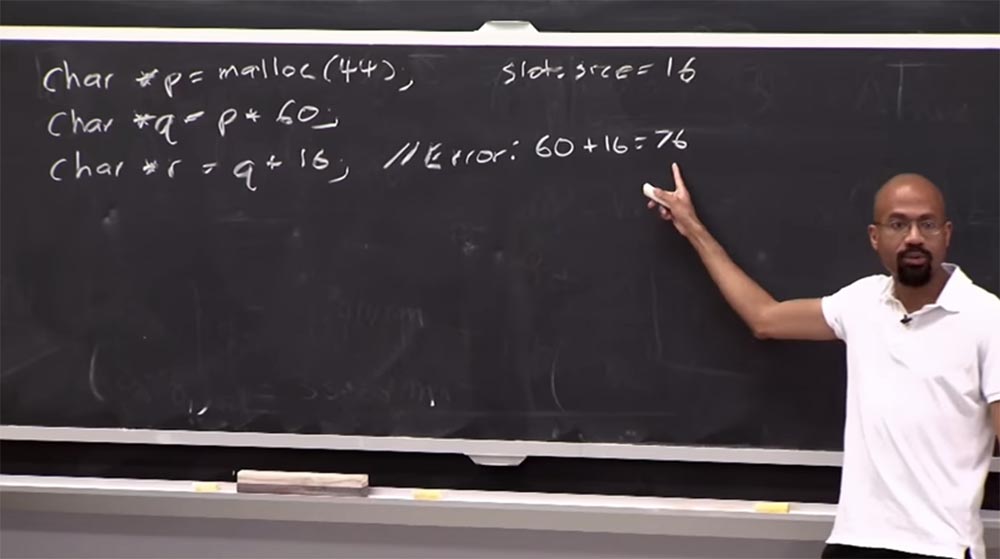 Char *p = malloc(44); slot.size = 16
Char *q = p + 60;
Char *r = q + 16; //Error: 60+16=76